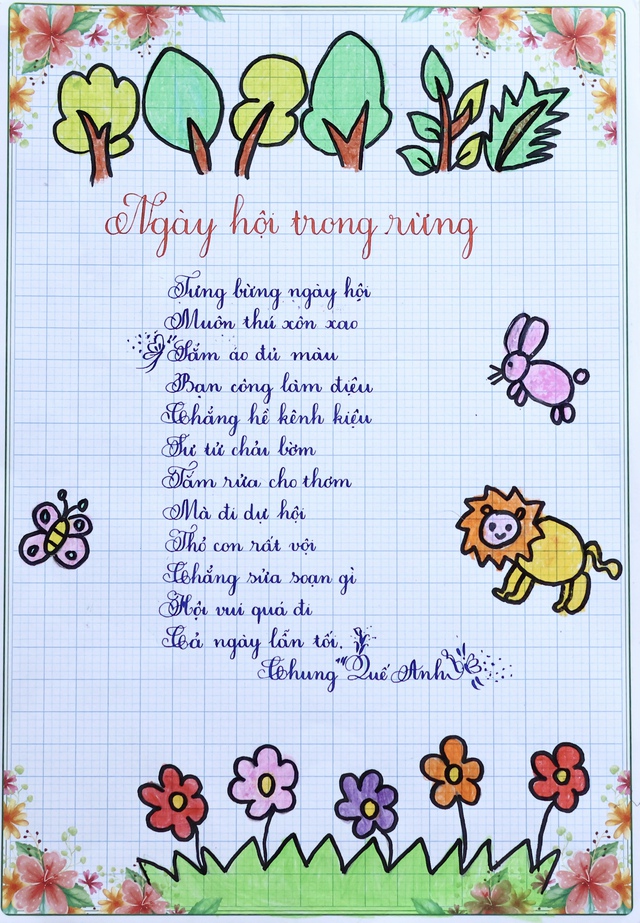 Ngày hội trong rừng
Tưng bừng ngày hội
Muôn thú xôn xao
Sắm áo đủ màu
Bạn công làm điệu
Chẳng hề kênh kiệu
Sư tử chải bờm
Tắm rửa cho thơm
Mà đi dự hội
Thỏ con rất vội
Chẳng sửa soạn gì
Hội vui quá đi
Cả ngày lẫn tối.
Chung Quế Anh